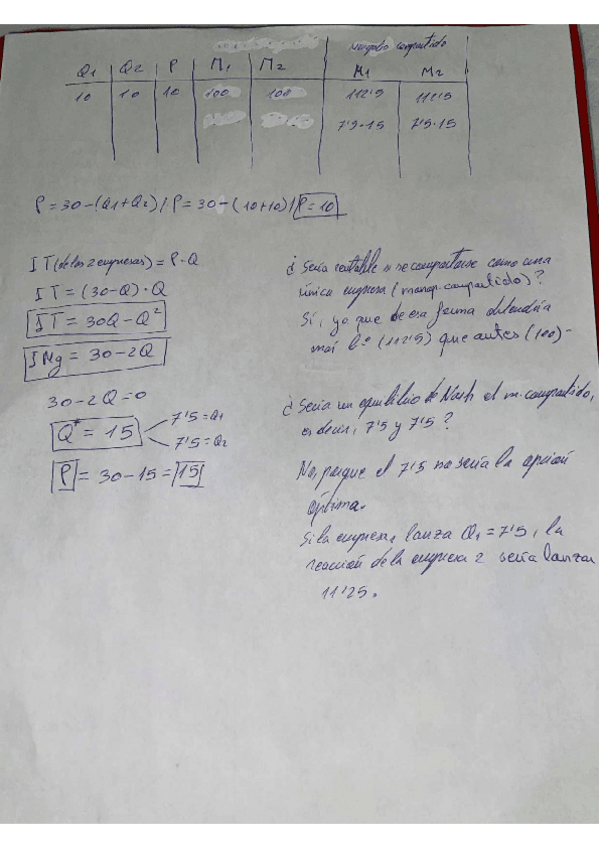 monopolio compartido
Q1 | Q2 | P | Π1 | Π2 | Π1 | Π2
10 | 10 | 10 | 100 | 100 | 112'5 | 112'5
7'5·15 | 7'5·15
P = 30-(Q1+Q2) / P = 30-(10+10) / P=10
IT (de las 2 empresas) = P·Q
IT = (30-Q)·Q
IT = 30Q-Q²
IMg = 30-2Q
30-2Q=0
Q* = 15
7'5 = Q1
7'5 = Q2
P = 30-15 = 15
¿Sería rentable si se compartarse como una
única empresa (monop. compartido)?
Sí, ya que de esa forma obtendría
más bº (112'5) que antes (100)-
¿Sería un equilibrio de Nash el m. compartido,
es decir, 7'5 y 7'5?
No, porque el 7'5 no sería la opción
óptima.
Si la empresa, lanza Q1=7'5, la
reacción de la empresa 2 sería lanzar
11'25.